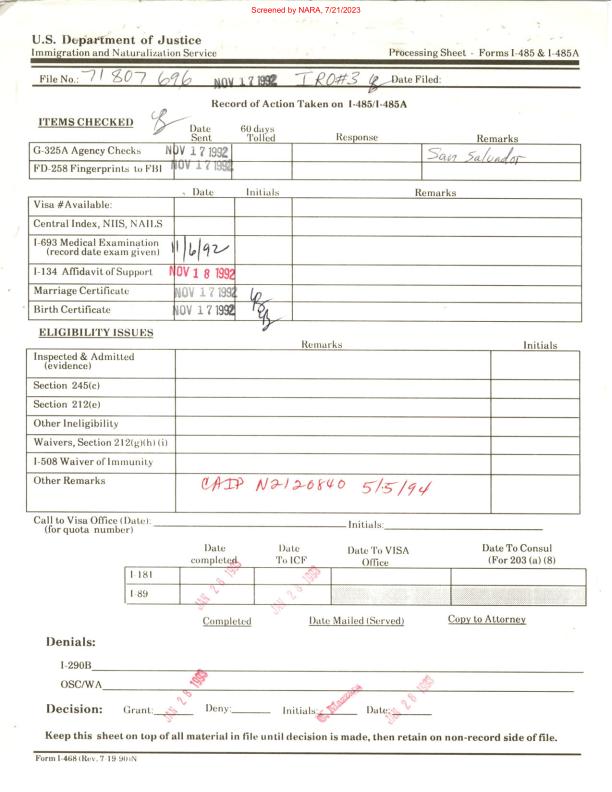 Screened by NARA, 7/21/2023
U.S. Department of Justice
Immigration and Naturalization Service Processing Sheet - Forms I-485 & I-485A
File No.: 71 807 696 NOV 17 1992 IRO#3 Date Filed:
Record of Action Taken on I-485/I-485A
ITEMS CHECKED
Date Sent 60 days Tolled Response Remarks
G-325A Agency Checks NOV 17 1992 San Salvador
FD-258 Fingerprints to FBI NOV 17 1992
Date Initials Remarks
Visa # Available:
Central Index, NIIS, NAILS
I-693 Medical Examination 11/6/92
(record date exam given)
I-134 Affidavit of Support NOV 18 1992
Marriage Certificate NOV 17 1992
Birth Certificate NOV 17 1992
ELIGIBILITY ISSUES
Remarks Initials
Inspected & Admitted
(evidence)
Section 245(c)
Section 212(e)
Other Ineligibility
Waivers, Section 212(g)(h)(i)
I-508 Waiver of Immunity
Other Remarks CAIP N2120840 5/5/94
Call to Visa Office (Date): Initials:
(for quota number)
Date completed Date To ICF Date To VISA Office Date To Consul (For 203 (a) (8)
I-181
I-89 JAN 28 1993 JAN 28 1993
Completed Date Mailed (Served) Copy to Attorney
Denials:
I-290B
OSC/WA
Decision: Grant: JAN 28 1993 Deny: Initials: Date: JAN 28 1993
Keep this sheet on top of all material in file until decision is made, then retain on non-record side of file.
Form I-468 (Rev. 7-19-90)N